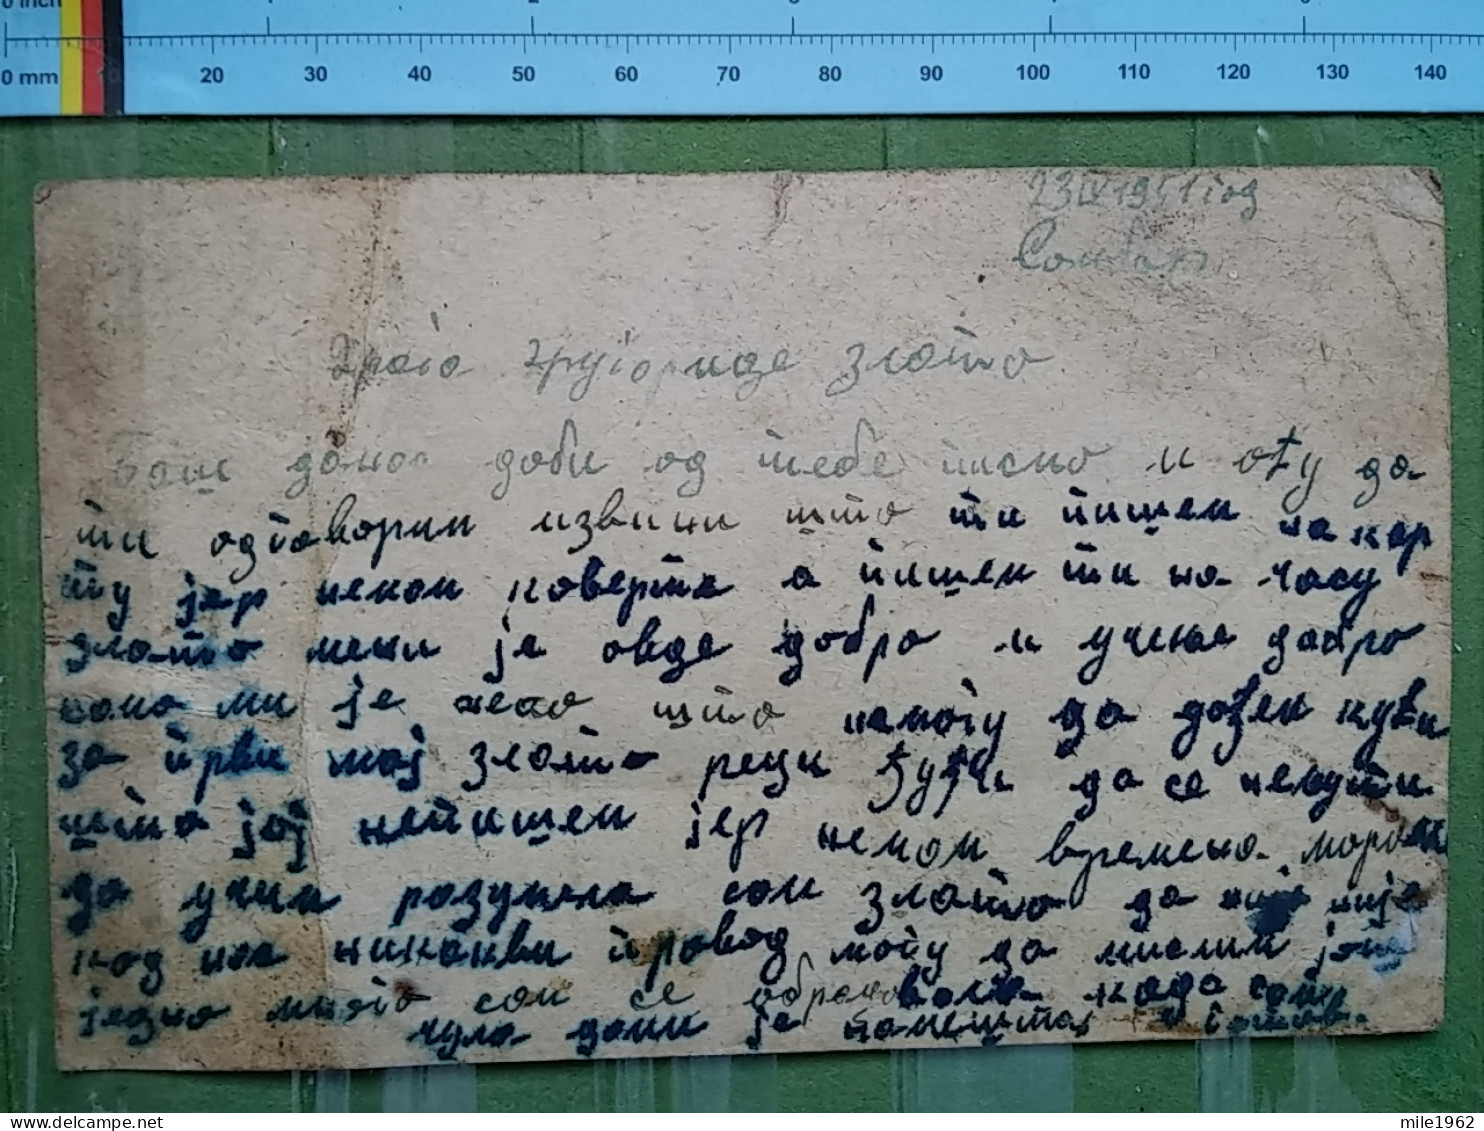 0 inch 2 3 4 5
0 mm 10 20 30 40 50 60 70 80 90 100 110 120 130 140
23 IV 1951 год
Сомбор
Драга другарице злато
Баш данас доби од тебе писмо и оћу да
ти одговорим извини што ти пишем на кар
ту јер немам коверте а пишем ти на часу
злато мени је овде добро и учење добро
само ми је што немогу да дођем кући
за први мај злато реци да се нељути
што јој непишем јер немам времена морам
да учим разумела сам злато да није
код нас никакви провод могу да мислим још
једно много сам се обрадовала када сам
чула дами је намештај готов.
mile1962